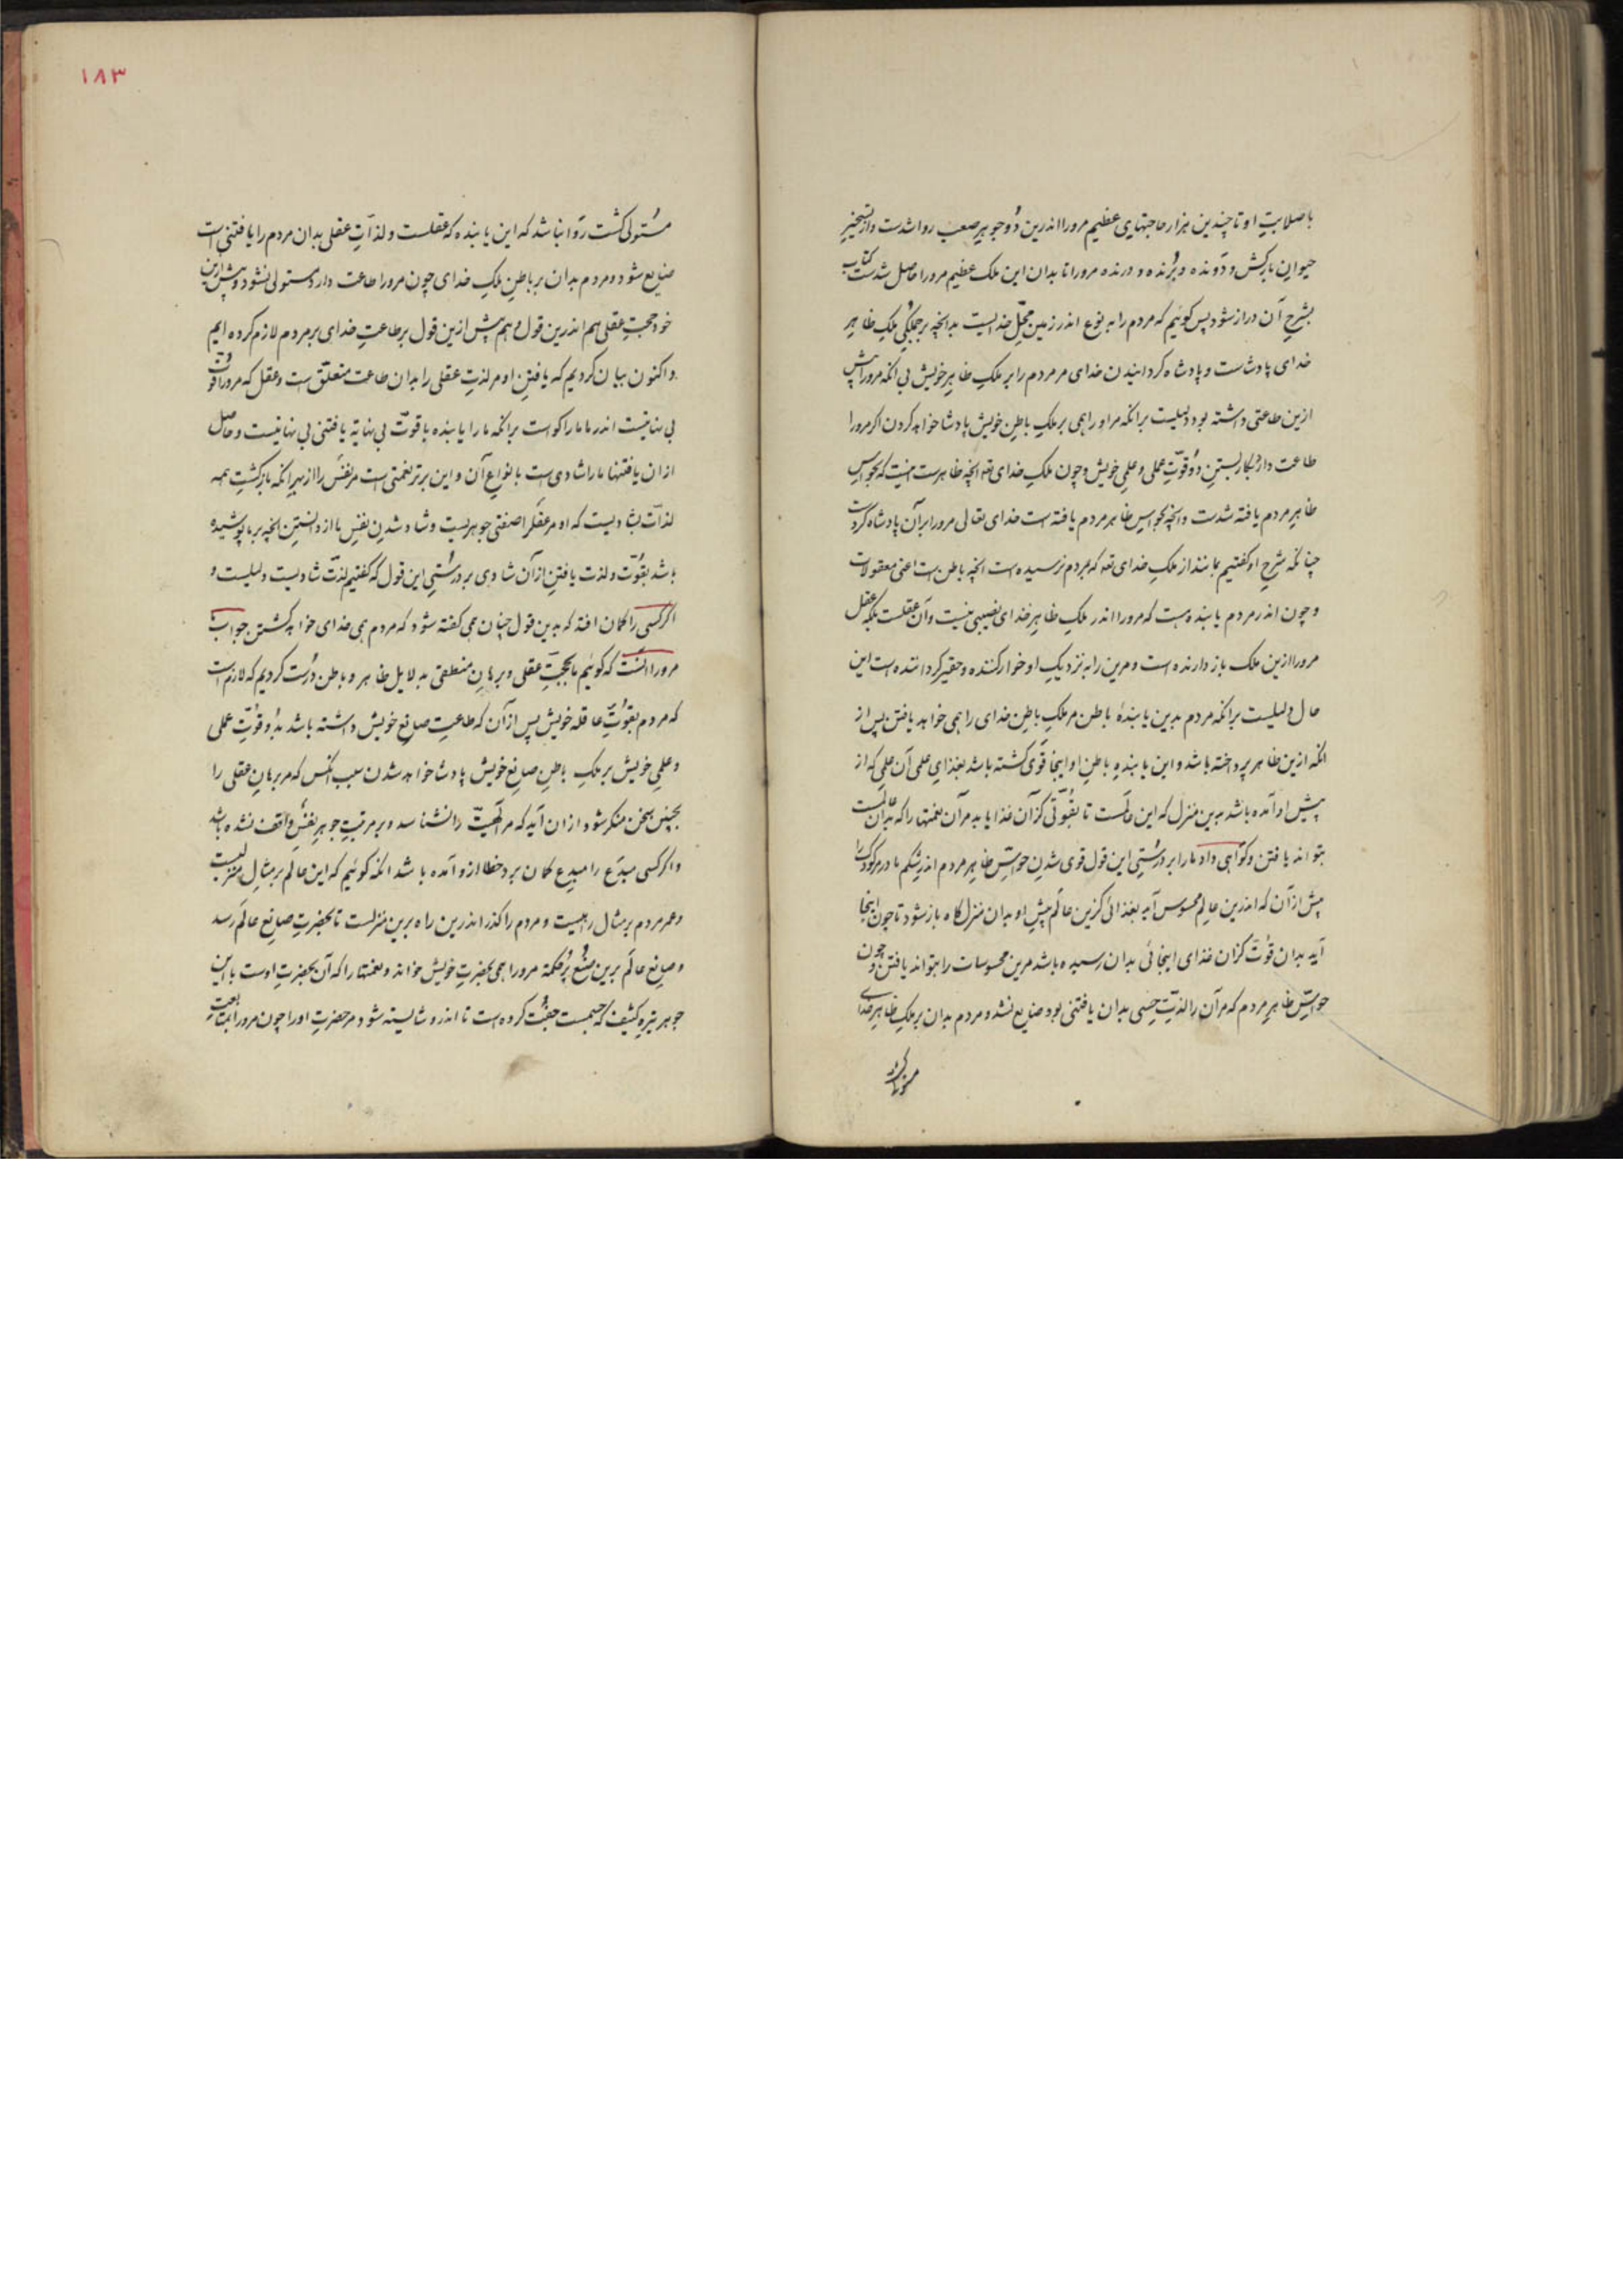 با صلابت او تا چندین هزار حاجتهای عظیم مرورا اندرین دو جوهر صعب روا شدست و از تسخیر
حیوان بارکش و دونده و پرنده و درنده مرورا تا بدان این ملک عظیم مرورا حاصل شدست کتاب
بشرح آن دراز شود پس کوئیم که مردم را به نوع اندر زمین محل خدائیست بدانچه بر جملکی ملک ظاهر
خدای پادشاست و پادشاه کردانیدن خدای مر مردم را بر ملک ظاهر خویش بی انکه مرورا پیش
ازین طاعتی داشته بود دلیلیست برانکه مر او را همی بر ملک باطن خویش پادشا خواهد کردن اکر مرورا
طاعت دارد بکار بستن دو قوت عملی و علمی خویش و چون ملک خدای تعه انچه ظاهرست اینست که بحواس
ظاهر مردم یافته شدست و انچه بحواس ظاهر مردم یافته است خدای تعالی مرورا بر آن پادشاه کردست
چنانکه شرح او کفتیم بماند از ملک خدای تعه که مردم نرسیده است انچه باطن است اعنی معقولات
و چون اندر مردم یابنده است که مرورا اندر ملک ظاهر خدای نصیبی نیست و آن عقلست بلکه عقل
مرورا ازین ملک باز دارنده است و مرین را به نزدیک او خوار کننده و حقیر کرداننده است این
حال دلیلیست برانکه مردم بدین یابندهٔ باطن مر ملک باطن خدای را همی خواهد یافتن پس از
انکه ازین ظاهر پرداخته باشد و این یابنده باطن او اینجا قوی کشته باشد بغذای علمی آن علمی که از
پیش او آمده باشد بدین منزل که این عالمست تا بقوتی کز آن غذا یابد مر آن نعمتها را که بدان عالمست
بتواند یافتن و کواهی داد مارا بر درستی این قول قوی شدن حواس ظاهر مردم اندر شکم مادر مر کودک را
پیش از آن که اندرین عالم محسوس آید بغذائی کزین عالم پیش او بدان منزلکاه باز شود تا چون اینجا
آید بدان قوت کزان غذای اینجائی بدان رسیده باشد مرین محسوسات را بتواند یافتن و چون
حواس ظاهر مردم که مر آن را لذت حسی بدان یافتنی بود ضایع نشد و مردم بدان بر ملک ظاهر خدای
١٨٣
مستولی کشت روا نباشد که این یابنده که عقلست و لذات عقلی بدان مردم را یافتنی است
ضایع شود و مردم بدان بر باطن ملک خدای چون مرورا طاعت دارد مستولی نشود و پیش ازین
خود حجت عقلی هم اندرین قول و هم پیش ازین قول بر طاعت خدای بر مردم لازم کرده ایم
و اکنون بیان کردیم که یافتن او مر لذت عقلی را بدان طاعت متعلق است و عقل که مرورا قوت
بی نهایتست اندر ما مارا کواست برانکه مارا یابنده با قوت بی نهایة یافتنی بی نهایتست و حاصل
از ان یافتنها مارا شادی است با نواع آن و این برتر نعمتی است مر نفس را از بهر انکه بازکشت همه
لذات بشادیست که او مر عقل را صفتی جوهریست و شاد شدن نفس ما از دانستن انچه بر ما پوشیده
باشد بقوت و لذت یافتن از آن شادی بر درستی این قول که کفتیم لذت شادیست دلیلیست و
اکر کسی را کمان افتد که بدین قول چنان همی کفته شود که مردم همی خدای خواهد کشتن جواب
مرورا انست که کوئیم ما بحجت عقلی و برهان منطقی به دلایل ظاهر و باطن درست کردیم که لازم است
که مردم بقوت عاقله خویش پس از آن که طاعت صانع خویش داشته باشد بدو قوت عملی
و علمی خویش بر ملک باطن صانع خویش پادشا خواهد شدن سبب انکس که مر برهان عقلی را
بچنین سخن منکر شود از ان آید که مر الهیت را نشناسد و بر مرتبت جوهر نفس واقف نشده باشد
و اکر کسی مبدع را مبدع کمان برد خطا ازو آمده باشد انکه کوئیم که این عالم بر مثال منزلیست
و عمر مردم بر مثال رهیست و مردم را کذر اندرین راه برین منزلست تا بحضرت صانع عالم رسد
و صانع عالم برین صنع پر حکمة مرورا همی بحضرت خویش خواند و نعمتها را که آن بحضرت اوست با این
جوهر تیره کثیف که جسمست جفت کرده است تا اندرو شایسته شود مر حضرت او را چون مرورا